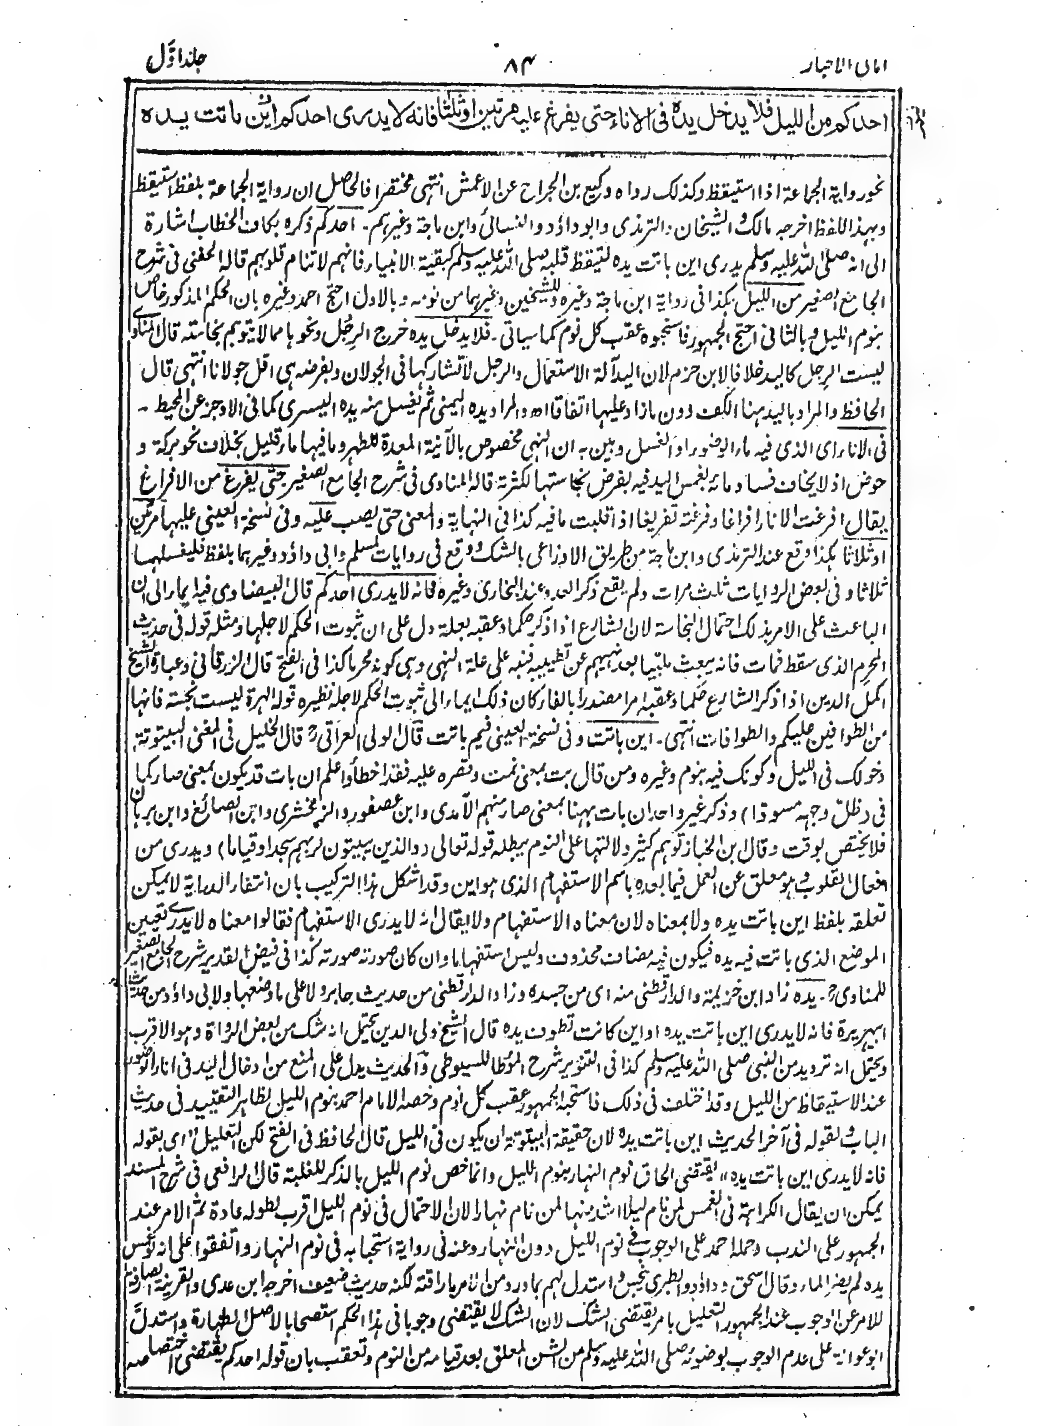 امانی الاحبار
۸۴
جلد اوّل
احدکم من اللیل فلا یدخل یده فی الاناء حتی یفرغ علیه مرتین او ثلثا فانه لا یدری احدکم این باتت یده
نحو روایة الجماعة اذا استیقظ وکذلک رواه وکیع بن الجراح عن الاعمش انتهی مختصرا فالحاصل ان روایة الجماعة بلفظ استیقظ
وبهذا اللفظ اخرجه مالک والشیخان والترمذی وابو داؤد والنسائی وابن ماجة وغیرهم۔ احدکم ذکره بکاف الخطاب اشارة
الی انه صلی الله علیه وسلم یدری این باتت یده لتیقظ قلبه صلی الله علیه وسلم کبقیة الانبیاء فانهم لا تنام قلوبهم قاله الحفنی فی شرح
الجامع الصغیر من اللیل هکذا فی روایة ابن ماجة وغیره وللشیخین وغیرهما من نومه وبالاول احتج احمد وغیره بان الحکم المذکور خاص
بنوم اللیل وبالثانی احتج الجمهور فاستحبوه عقب کل نوم کما سیاتی۔ فلا یدخل یده خرج الرجل ونحوها مما لا یتوهم نجاسته قال المناوی
لیست الرجل کالید خلافا لابن حزم لان الید آلة الاستعمال والرجل لا تشارکها فی الجولان وبفرضه هی اقل جولانا انتهی قال
الحافظ والمراد بالید هنا الکف دون ما زاد علیها اتفاقا اه والمراد یده الیمنی ثم تغسل منه یده الیسری کما فی الاوجز عن المحیط۔
فی الاناء ای الذی فیه ماء الوضوء او الغسل وبین به ان النهی مخصوص بالآنیة المعدة للطهر وما فیها ماء قلیل بخلاف نحو برکة و
حوض اذ لا یخاف فساد مائه بغمس الید فیه بفرض نجاستها لکثرته قاله المناوی فی شرح الجامع الصغیر حتی یفرغ من الافراغ
یقال افرغت الاناء افراغا وفرغته تفریغا اذا قلبت ما فیه کذا فی النهایة والمعنی حتی یصب علیه وفی نسخة العینی علیها مرتین
او ثلاثا هکذا وقع عند الترمذی وابن ماجة من طریق الاوزاعی بالشک ووقع فی روایات لمسلم وابی داؤد وغیرهما بلفظ فلیغسلها
ثلاثا وفی بعض الروایات ثلث مرات ولم یقع ذکر العدد عند البخاری وغیره فانه لا یدری احدکم قال البیضاوی فیه ایماء الی ان
الباعث علی الامر بذلک احتمال النجاسة لان الشارع اذا ذکر حکما وعقبه بعلة دل علی ان ثبوت الحکم لاجلها ومثله قوله فی حدیث
المحرم الذی سقط فمات فانه یبعث ملبیا بعد نهیهم عن تطییبه فنبه علی علة النهی وهی کونه محرما کذا فی الفتح قال الزرقانی وعبارة الشیخ
اکمل الدین اذا ذکر الشارع حکما وعقبه امرا مصدرا بالفاء کان ذلک ایماء الی ثبوت الحکم لاجله نظیره قوله الهرة لیست بنجسة فانها
من الطوافین علیکم والطوافات انتهی۔ این باتت وفی نسخة العینی فیم باتت قال الولی العراقی قال الخلیل فی المغنی البیتوتة
دخولک فی اللیل وکونک فیه بنوم وغیره ومن قال بت بمعنی نمت وفسره علیه فقد اخطأ واعلم ان بات قد یکون بمعنی صار کما
فی (ظل وجهه مسودا) وذکر غیر واحد ان بات ههنا بمعنی صار منهم الآمدی وابن عصفور والزمخشری وابن الصائغ وابن برهان
فلا یختص بوقت وقال ابن الخباز توهم کثیر دلالتها علی النوم یبطله قوله تعالی (والذین یبیتون لربهم سجدا وقیاما) ویدری من
افعال القلوب وهو معلق عن العمل فیما بعده باسم الاستفهام الذی هو این وقد اشکل هذا الترکیب بان انتفاء الدرایة لا یمکن
تعلقه بلفظ این باتت یده ولا بمعناه لان معناه الاستفهام ولا یقال انه لا یدری الاستفهام فقالوا معناه لا یدری تعیین
الموضع الذی باتت فیه یده فیکون فیه مضاف محذوف ولیس استفهاما وان کان صورته صورته کذا فی فیض القدیر شرح الجامع الصغیر
للمناوی۔ یده زاد ابن خزیمة والدارقطنی منه ای من جسده وزاد الدارقطنی من حدیث جابر ولا علی ما وضعها ولابی داؤد من حدیث
ابی هریرة فانه لا یدری این باتت یده او این کانت تطوف یده قال الشیخ ولی الدین یحتمل انه شک من بعض الرواة وهو الاقرب
ویحتمل انه تردید من النبی صلی الله علیه وسلم کذا فی التنویر شرح المؤطا للسیوطی والحدیث یدل علی المنع من ادخال الید فی اناء الوضوء
عند الاستیقاظ من اللیل وقد اختلف فی ذلک فاستحبه الجمهور عقب کل نوم وخصه الامام احمد بنوم اللیل لظاهر التقیید فی حدیث
الباب ولقوله فی آخر الحدیث این باتت یده لان حقیقة البیتوتة ان یکون فی اللیل قال الحافظ فی الفتح لکن التعلیل "ای بقوله
فانه لا یدری این باتت یده" یقتضی الحاق نوم النهار بنوم اللیل وانما خص نوم اللیل بالذکر للغلبة قال الرافعی فی شرح المسند
یمکن ان یقال الکراهة فی الغمس لمن نام لیلا اشد منها لمن نام نهارا لان الاحتمال فی نوم اللیل اقرب لطوله عادة ثم الامر عند
الجمهور علی الندب وحمله احمد علی الوجوب فی نوم اللیل دون النهار وعنه فی روایة استحبابه فی نوم النهار واتفقوا علی انه لو غمس
یده لم یضر الماء وقال اسحق وداؤد والطبری ینجس واستدل لهم بما ورد من الامر باراقته لکنه حدیث ضعیف اخرجه ابن عدی والقرینة الصارفة
للامر عن الوجوب عند الجمهور التعلیل بامر یقتضی الشک لان الشک لا یقتضی وجوبا فی هذا الحکم استصحابا لاصل الطهارة واستدل
ابو عوانة علی عدم الوجوب بوضوئه صلی الله علیه وسلم من الشن المعلق بعد قیامه من النوم وتعقب بان قوله احدکم یقتضی اختصاصه